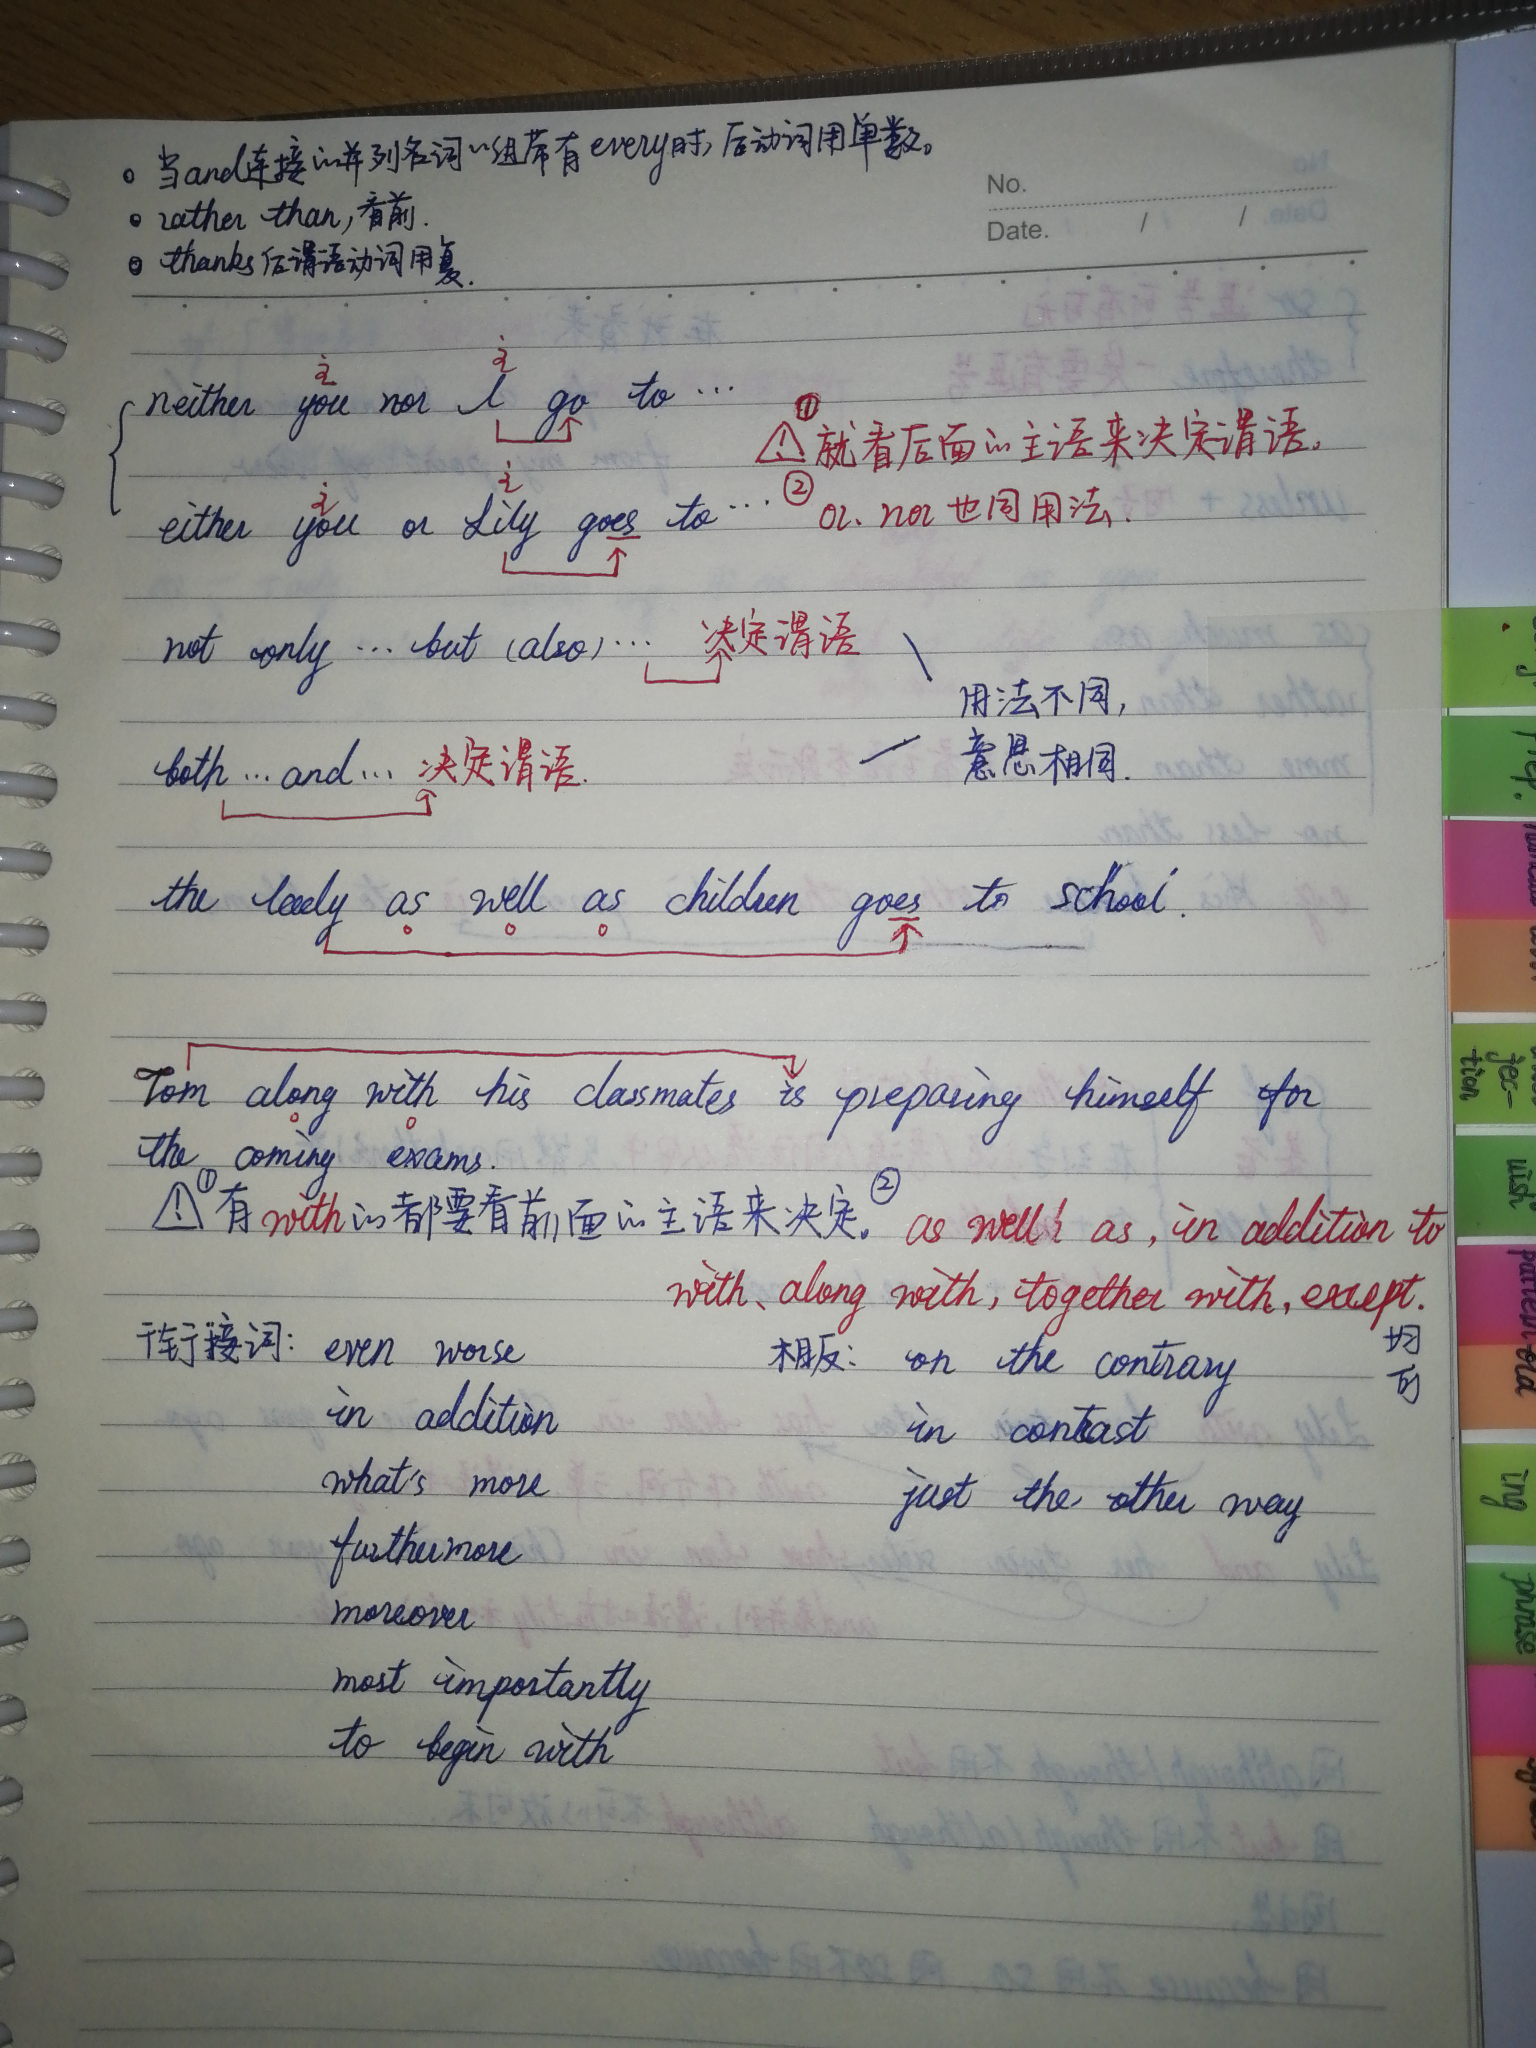 。当and连接的并列名词词组带有every时,后动词用单数。
。rather than,看前.
。thanks后谓语动词用复.
No.
Date. / /
主 主
neither you nor I go to …
① ⚠就看后面的主语来决定谓语.
主 主
either you or Lily goes to …
② or、nor也同用法.
not only … but (also) … 决定谓语
用法不同,
意思相同.
both … and … 决定谓语.
the leedy as well as children goes to school.
Tom along with his classmates is preparing himself for
the coming exams.
⚠①有with的都要看前面的主语来决定。② as well as, in addition to
with、along with, together with, except.
均可
衔接词: even worse
in addition
what's more
furthermore
moreover
most importantly
to begin with
相反: on the contrary
in contrast
just the other way
prep.
tion
wish
ing
phrase